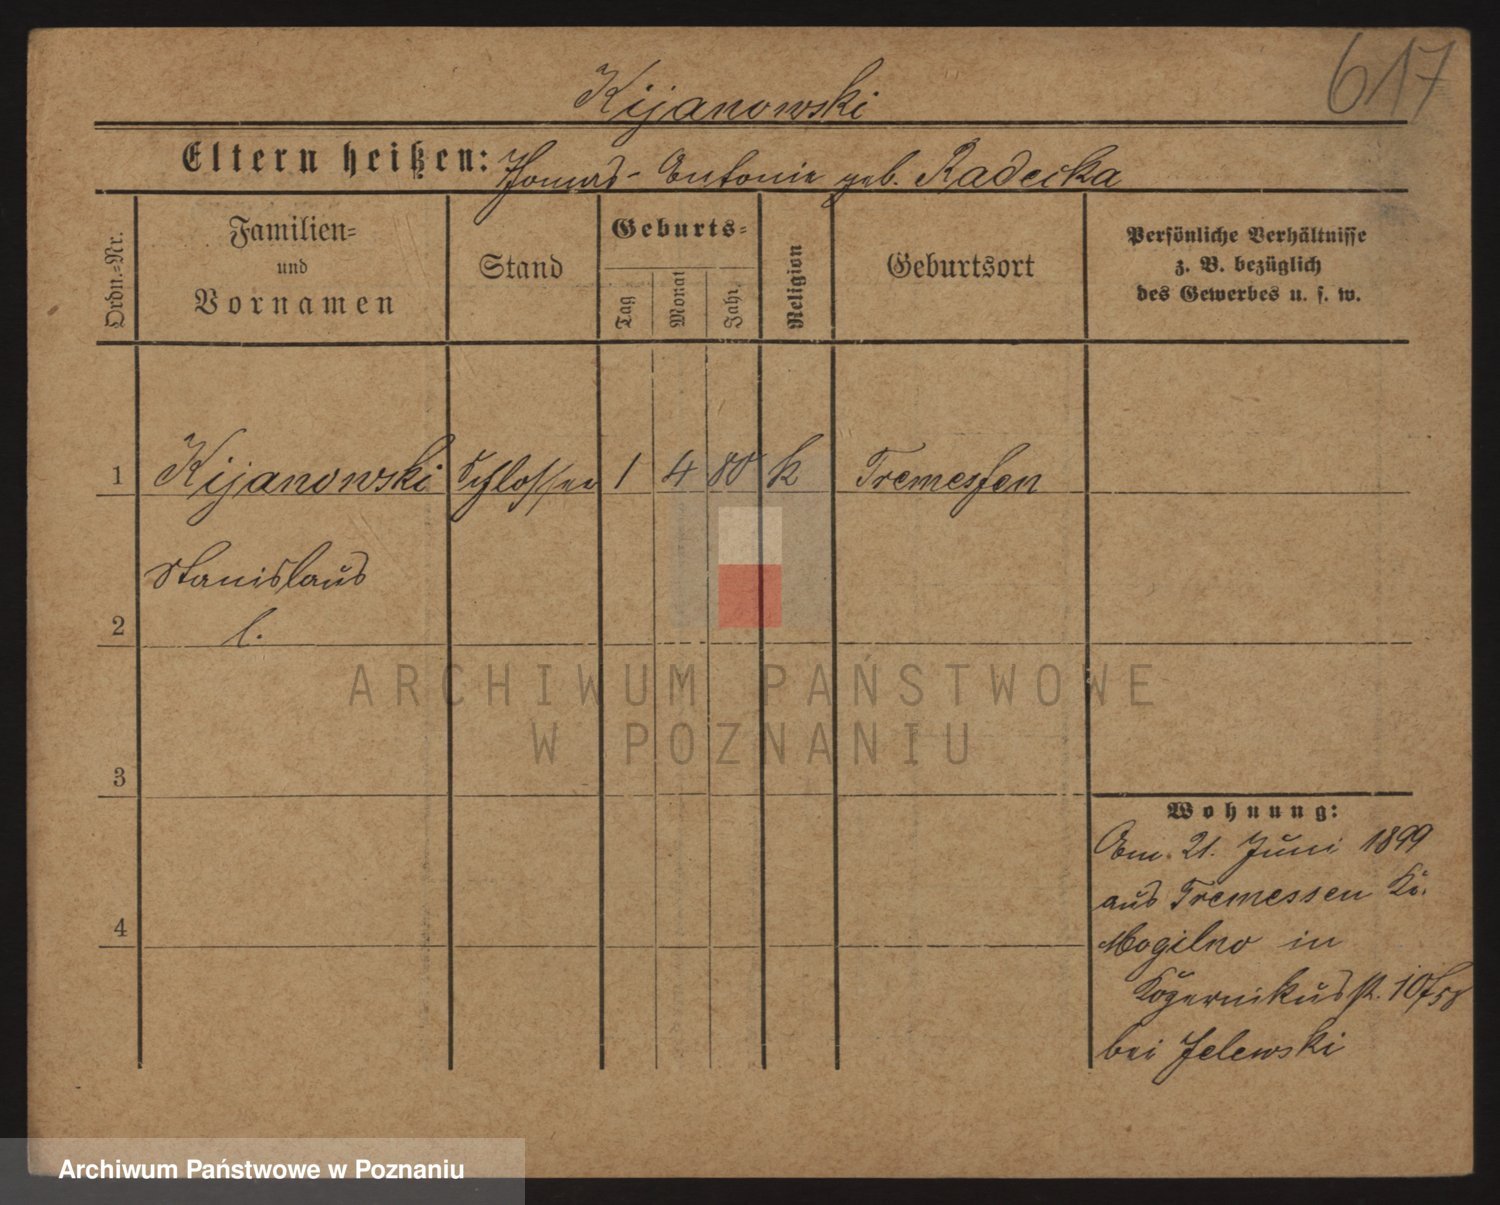 617
Kijanowski
Eltern heißen: Thomas - Antonie geb. Radecka
Ordn.-Nr.
Familien-
und
Vornamen
Stand
Geburts-
Tag
Monat
Jahr
Religion
Geburtsort
Persönliche Verhältnisse
z. B. bezüglich
des Gewerbes u. s. w.
1 Kijanowski Schlosser 1 4 80 k Tremessen
Stanislaus
2 l.
3
4
Wohnung:
Am 21. Juni 1899
aus Tremessen Kr.
Mogilno in
bei Jelewski
ARCHIWUM PAŃSTWOWE
W POZNANIU
Archiwum Państwowe w Poznaniu